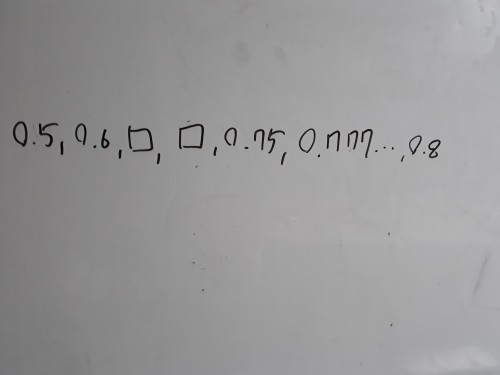 0.5, 0.6, □, □, 0.75, 0.777..., 0.8